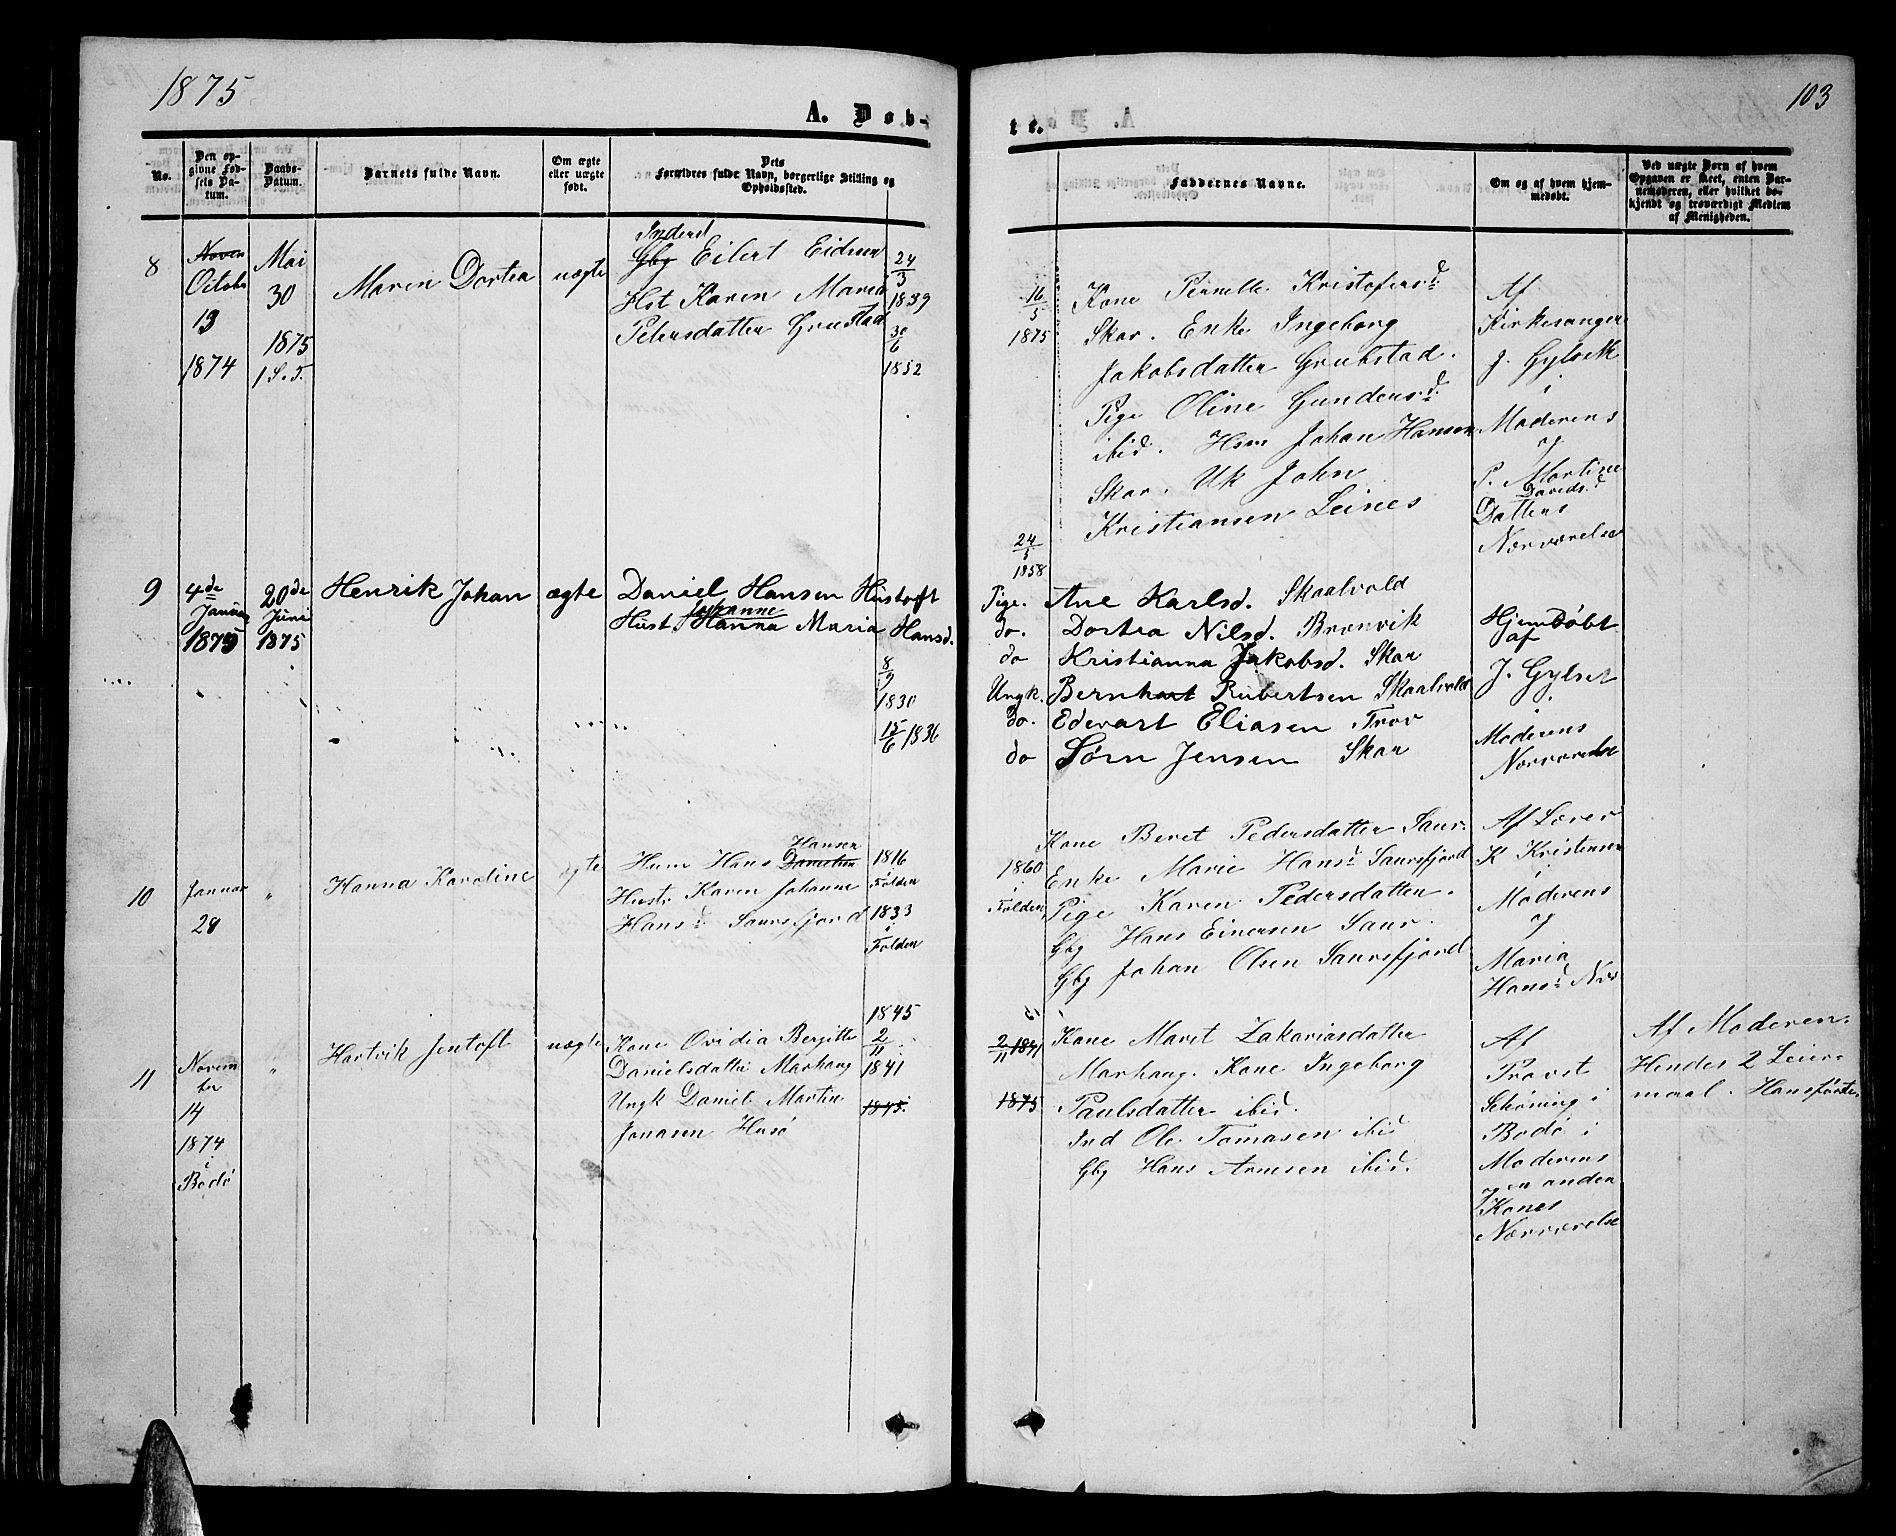 1875
A. Døb-
No.
Den op-
givne Fød-
sels Da-
tum.
Daabs-
Datum.
Barnets fulde Navn.
Om ægte
eller uægte
født.
Dets
Forældres fulde Navn, borgerlige Stilling og
Opholdssted.
8
Noven
Octobr
13
1874
Mai
30
1875
1 S. T.
Maren Dortea
uægte
Inderst
Gbg Eilert Eidsen
Hst Karen Maria
Petersdatter Grustad
24/3
1839
30/6
1852
9
4de
Januar
1875
20de
Juni
1875
Henrik Johan
ægte
Daniel Hansen Hustoft
Johanne
Hust. Hanna Maria Hansd.
8/9
1830
15/6 1836
10
Januar
28
"
Hanna Karoline
ægte
Hansen
Husm Hans Danielsen
Hustr Karen Johanne
Hans.d Saursfjord
1816
Folden
1833
i
Folden
11
Novem
ber
14
1874
i
Bodø
"
Hartvik Jentoft
uægte
Kone Ovidia Bergitte
Danielsdatter Marhaug
Ungk Daniel Martin
Jonasen Husø
1845
2/11
1841
1845.
103
te.
Faddernes Navne.
Om og af hvem hjem-
medøbt.
Ved uægte Børn af hvem
Opgaven er skeet, enten Bar-
nemoderen, eller hvilket be-
kjendt og troværdigt Medlem
af Menigheden.
16/5
1875
Kone Pernelle Kristofersd
Skar. Enke Ingeborg
Jakobsdatter Grubstad.
Pige Oline Gundersd.
ibid. Hsm Johan Hansen
Skar. Uk John
Kristiansen Leines
Af
Kirkesanger
J. Gylseth
i
Moderens
og
P. Martine
Davids.d
Datters
Nærværelse
24/5
1858
Pige. Ane Karlsd. Skaalvold
do. Dortea Nilsd. Brunvik
do Kristianna Jakobsd. Skar
Ungk. Bernhart Robertsen Skaalvold
do. Edevart Eliasen Trov
do Sørn Jensen Skar
Hjemdøbt
af
J. Gylset
i
Moderens
Nærværelse
1860
i
Folden
Kone Beret Pedersdatter Saur.
Enke Marie Hans.d Saursfjord
Pige Karen Pedersdatter.
Gbg Hans Einersen Saur.
Gbg Johan Olsen Saursfjord
Af Lærer
K Kristensen
i
Moderens
og
Maria
Hans.d Nær
2/11 1841
1875
Kone Maret Zakariasdatter
Marhaug. Kone Ingeborg
Paulsdatter ibid.
Ind Ole Tomasen ibid
Gbg Hans Arnesen ibid.
Af
Provst
Schøning i
Bodø i
Moderens
og en anden
Kones
Nærværelse
Af Moderen.
Hendes 2 Leier-
maal. Hansførste.